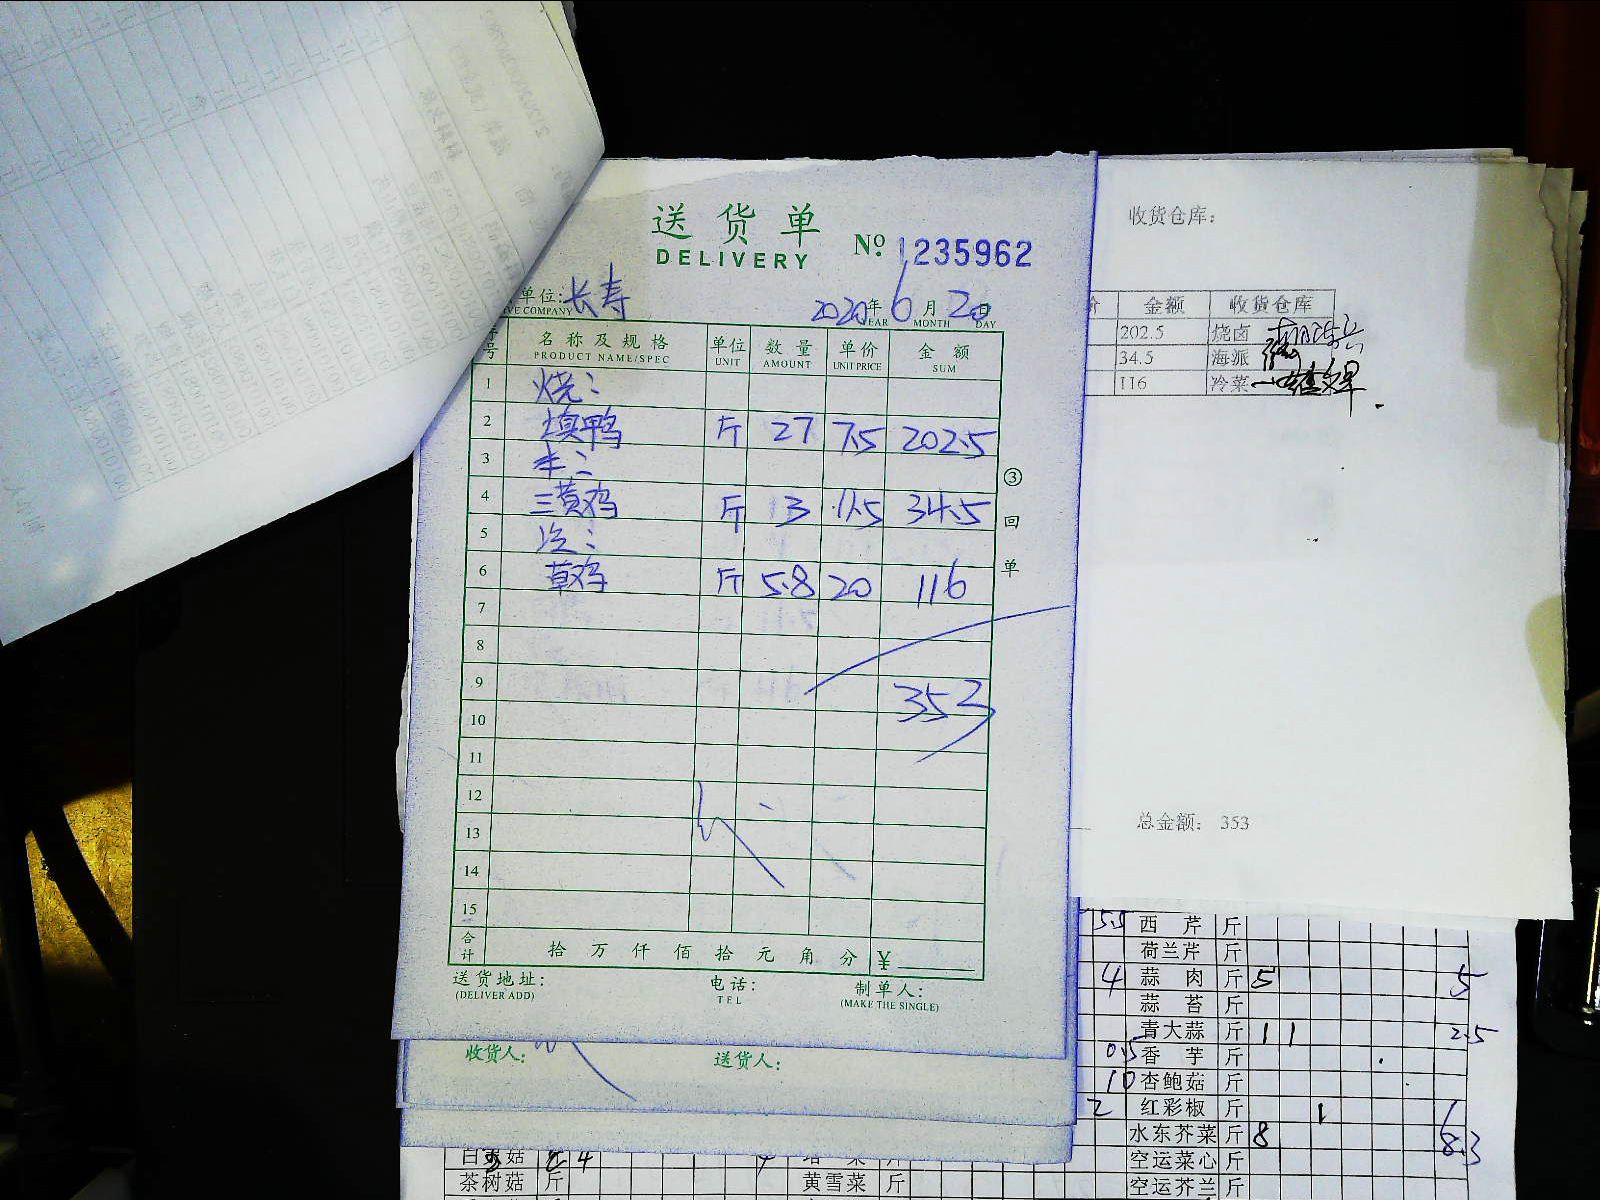 送货单
DELIVERY
№ 1235962
单位: 长寿
VE COMPANY
2020年 6月 20日
YEAR MONTH DAY
号 名称及规格 单位 数量 单价 金额
PRODUCT NAME/SPEC UNIT AMOUNT UNIT PRICE SUM
1 烧:
2 填鸭 斤 27 7.5 202.5
3
4 三黄鸡 斤 3 11.5 34.5
5
6 草鸡 斤 5.8 20 116
7
8
9 353
10
11
12
13
14
15
合计 拾 万 仟 佰 拾 元 角 分 ¥
送货地址: 电话: 制单人:
(DELIVER ADD) TEL (MAKE THE SINGLE)
③回单
收货人: 送货人:
收货仓库:
价 金额 收货仓库
202.5 烧卤
34.5 海派
116 冷菜
总金额: 353
5.5 西芹 斤
荷兰芹 斤
4 蒜肉 斤 5 5
蒜苔 斤
青大蒜 斤 1 1 2.5
0.5 香芋 斤
10 杏鲍菇 斤
2 红彩椒 斤 1 1
水东芥菜 斤 8 8.3
空运菜心 斤
空运芥兰 斤
茶树菇 斤
黄雪菜 斤